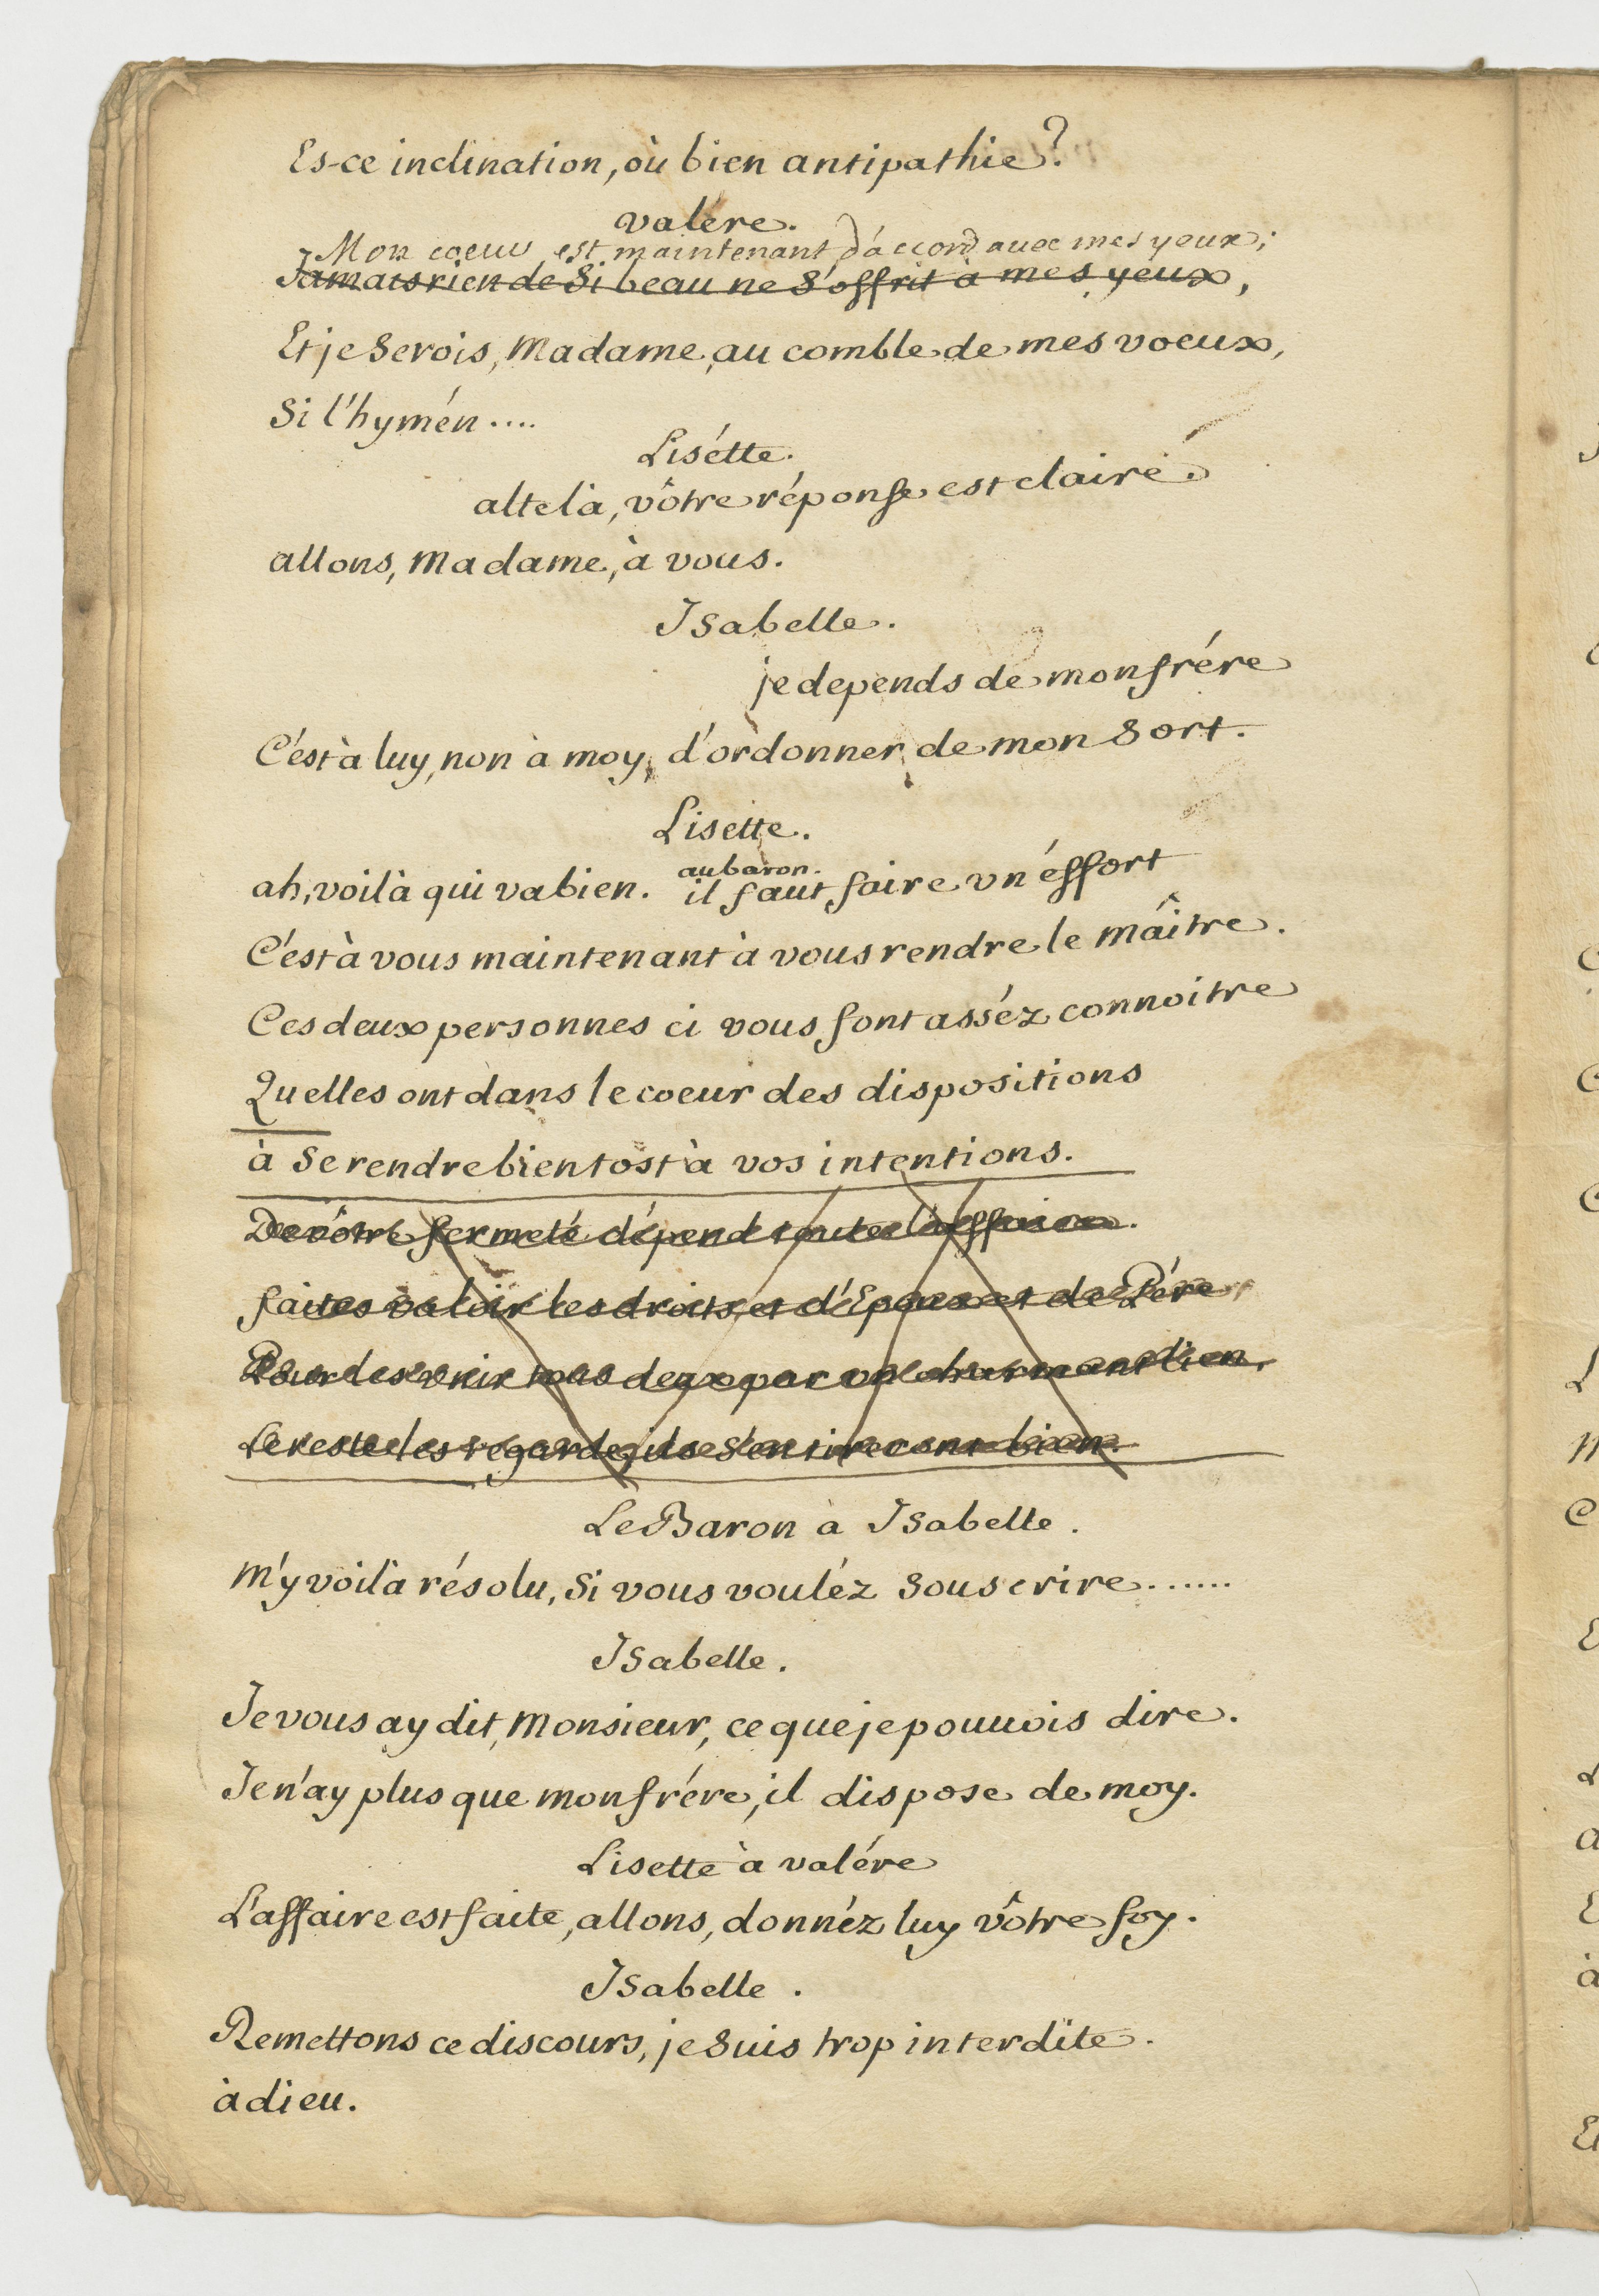 Es-ce inclination, où bien antipathie?
valére.
Mon coeur est maintenant d'accord avec mes yeux;
Jamais rien de Si beau ne S'offrit à mes yeux,
Et je Serois, Madame, au comble de mes voeux,
Si l'hymén....
Lisétte.
alte là, vôtre réponse est claire.
allons, Madame, à vous.
Isabelle.
je depends de mon frére
C'est à luy, non à moy, d'ordonner de mon Sort.
Lisette.
au baron.
ah, voilà qui va bien. il faut faire vn éffort
C'est à vous maintenant à vous rendre le maître.
Ces deux personnes ci vous font asséz connoitre
Quelles ont dans le coeur des dispositions
à Se rendre bientost à vos intentions.
De vôtre fermeté dépend toute l'affaire.
faites valoir les droits et d'Epoux et de Pére
Pour les vnir tous deux par vn charmant lien.
Le reste les regarde, ils S'en tireront bien.
Le Baron à Isabelle.
M'y voilà résolu, Si vous voulèz Souscrire.......
Isabelle.
Je vous ay dit, Monsieur, ce que je pouuois dire.
Je n'ay plus que mon frére, il dispose de moy.
Lisette à valére
L'affaire est faite, allons, donnéz luy vôtre foy.
Isabelle.
Remettons ce discours, je Suis trop interdite.
àdieu.